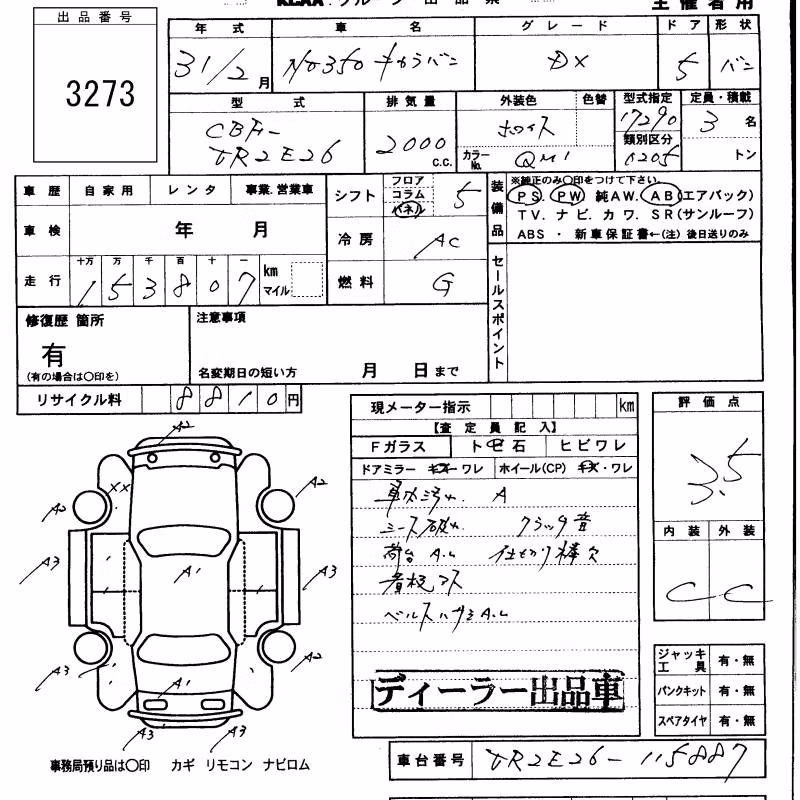 出品番号
3273
年式 車名 グレード ドア 形状
31/2月 NV350 キャラバン DX 5 バン
型式 排気量 外装色 色替 型式指定 定員・積載
CBF-VR2E26 2000 c.c. ホワイト 17290 3名
カラーNo. QM1 類別区分 0205 トン
車歴 自家用 レンタ 事業.営業車
車検 年 月
走行 十万 万 千 百 十 一 km マイル
153807
シフト フロア コラム パネル 5
冷房 AC
燃料 G
装備品 ※純正のみ○印をつけて下さい。
PS. PW. 純AW. AB(エアバック)
TV. ナビ. カワ. SR(サンルーフ)
ABS ・ 新車保証書←(注) 後日送りのみ
セールスポイント
修復歴 箇所
有
(有の場合は○印を)
注意事項
名変期日の短い方 月 日まで
リサイクル料 8810円
現メーター指示 km
【査定員記入】
Fガラス トビ石 ヒビワレ
ドアミラー キズ・ワレ ホイール(CP) キズ・ワレ
車内汚れ A
シート破れ クラッチ音
荷台 A.U 仕切り棒欠
看板アト
ディーラー出品車
評価点
3.5
内装 外装
C C
ジャッキ工具 有・無
パンクキット 有・無
スペアタイヤ 有・無
A2
XX
A2 A2
A3 A1 A3
A3 A2
A1
A3 A3
事務局預り品は○印 カギ リモコン ナビロム
車台番号 VR2E26-115887